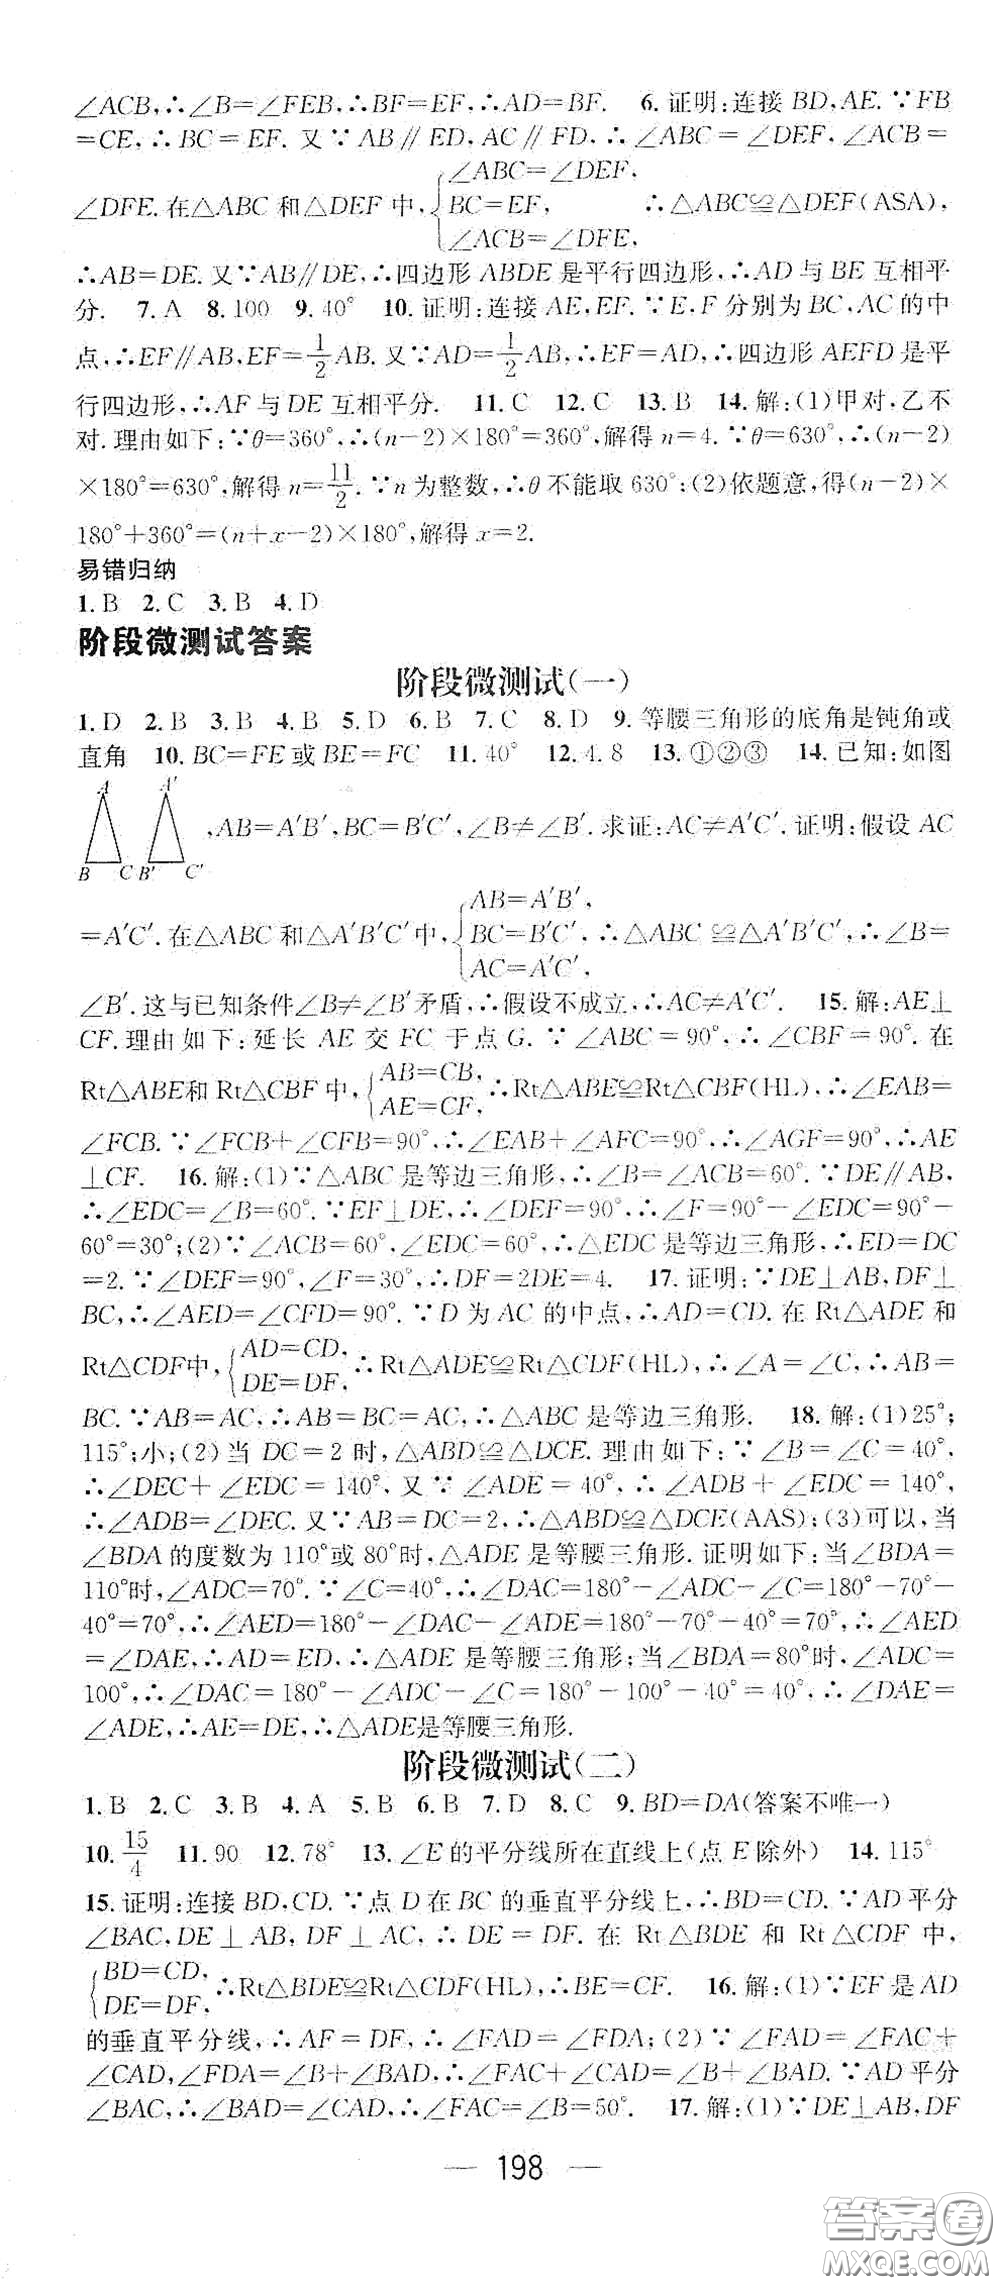 ∠ACB,∴∠B=∠FEB,∴BF=EF,∴AD=BF. 6.证明:连接 BD,AE.∵FB
=CE,∴BC=EF. 又∵AB∥ED,AC∥FD,∴∠ABC=∠DEF,∠ACB=
∠DFE.在△ABC 和△DEF 中,{∠ABC=∠DEF, BC=EF, ∠ACB=∠DFE, ∴△ABC≌△DEF(ASA),
∴AB=DE.又∵AB∥DE,∴四边形 ABDE 是平行四边形,∴AD 与 BE 互相平
分. 7.A 8.100 9.40° 10.证明:连接 AE,EF.∵E,F 分别为 BC,AC 的中
点,∴EF∥AB,EF=1/2AB.又∵AD=1/2AB,∴EF=AD,∴四边形 AEFD 是平
行四边形,∴AF 与 DE 互相平分. 11.C 12.C 13.B 14.解:(1)甲对,乙不
对.理由如下:∵θ=360°,∴(n-2)×180°=360°,解得 n=4.∵θ=630°,∴(n-2)
×180°=630°,解得 n=11/2.∵n 为整数,∴θ 不能取 630°;(2)依题意,得(n-2)×
180°+360°=(n+x-2)×180°,解得 x=2.
易错归纳
1.B 2.C 3.B 4.D
阶段微测试答案
阶段微测试(一)
1.D 2.B 3.B 4.B 5.D 6.B 7.C 8.D 9.等腰三角形的底角是钝角或
直角 10.BC=FE或BE=FC 11.40° 12.4.8 13.①②③ 14.已知:如图
A A′ B C B′ C′
,AB=A′B′,BC=B′C′,∠B≠∠B′.求证:AC≠A′C′.证明:假设 AC
=A′C′.在△ABC 和△A′B′C′中,{AB=A′B′, BC=B′C′, AC=A′C′, ∴△ABC≌△A′B′C′,∴∠B=
∠B′.这与已知条件∠B≠∠B′矛盾,∴假设不成立,∴AC≠A′C′. 15.解:AE⊥
CF.理由如下:延长 AE 交 FC 于点 G.∵∠ABC=90°,∴∠CBF=90°.在
Rt△ABE和 Rt△CBF 中,{AB=CB, AE=CF, ∴Rt△ABE≌Rt△CBF(HL),∴∠EAB=
∠FCB.∵∠FCB+∠CFB=90°,∴∠EAB+∠AFC=90°,∴∠AGF=90°,∴AE
⊥CF. 16.解:(1)∵△ABC 是等边三角形,∴∠B=∠ACB=60°.∵DE∥AB,
∴∠EDC=∠B=60°.∵EF⊥DE,∴∠DEF=90°,∴∠F=90°-∠EDC=90°-
60°=30°;(2)∵∠ACB=60°,∠EDC=60°,∴△EDC 是等边三角形,∴ED=DC
=2.∵∠DEF=90°,∠F=30°,∴DF=2DE=4. 17.证明:∵DE⊥AB,DF⊥
BC,∴∠AED=∠CFD=90°.∵D 为 AC 的中点,∴AD=CD.在 Rt△ADE 和
Rt△CDF中,{AD=CD, DE=DF, ∴Rt△ADE≌Rt△CDF(HL),∴∠A=∠C,∴AB=
BC.∵AB=AC,∴AB=BC=AC,∴△ABC 是等边三角形. 18.解:(1)25°;
115°;小;(2)当 DC=2 时,△ABD≌△DCE.理由如下:∵∠B=∠C=40°,
∴∠DEC+∠EDC=140°,又∵∠ADE=40°,∴∠ADB+∠EDC=140°,
∴∠ADB=∠DEC.又∵AB=DC=2,∴△ABD≌△DCE(AAS);(3)可以,当
∠BDA 的度数为 110°或 80°时,△ADE 是等腰三角形.证明如下:当∠BDA=
110°时,∠ADC=70°.∵∠C=40°,∴∠DAC=180°-∠ADC-∠C=180°-70°-
40°=70°,∴∠AED=180°-∠DAC-∠ADE=180°-70°-40°=70°,∴∠AED
=∠DAE,∴AD=ED,∴△ADE 是等腰三角形;当∠BDA=80°时,∠ADC=
100°,∴∠DAC=180°-∠ADC-∠C=180°-100°-40°=40°,∴∠DAE=
∠ADE,∴AE=DE,∴△ADE是等腰三角形.
阶段微测试(二)
1.B 2.C 3.B 4.A 5.B 6.B 7.D 8.C 9.BD=DA(答案不唯一)
10.15/4 11.90 12.78° 13.∠E的平分线所在直线上(点 E 除外) 14.115°
15.证明:连接 BD,CD.∵点 D 在 BC 的垂直平分线上,∴BD=CD.∵AD平分
∠BAC,DE⊥AB,DF⊥AC,∴DE=DF.在 Rt△BDE 和 Rt△CDF 中,
{BD=CD, DE=DF, ∴Rt△BDE≌Rt△CDF(HL),∴BE=CF. 16.解:(1)∵EF 是 AD
的垂直平分线,∴AF=DF,∴∠FAD=∠FDA;(2)∵∠FAD=∠FAC+
∠CAD,∠FDA=∠B+∠BAD,∴∠FAC+∠CAD=∠B+∠BAD.∵AD平分
∠BAC,∴∠BAD=∠CAD,∴∠FAC=∠B=50°. 17.解:(1)∵DE⊥AB,DF
— 198 —
答案圈
MXQE.COM